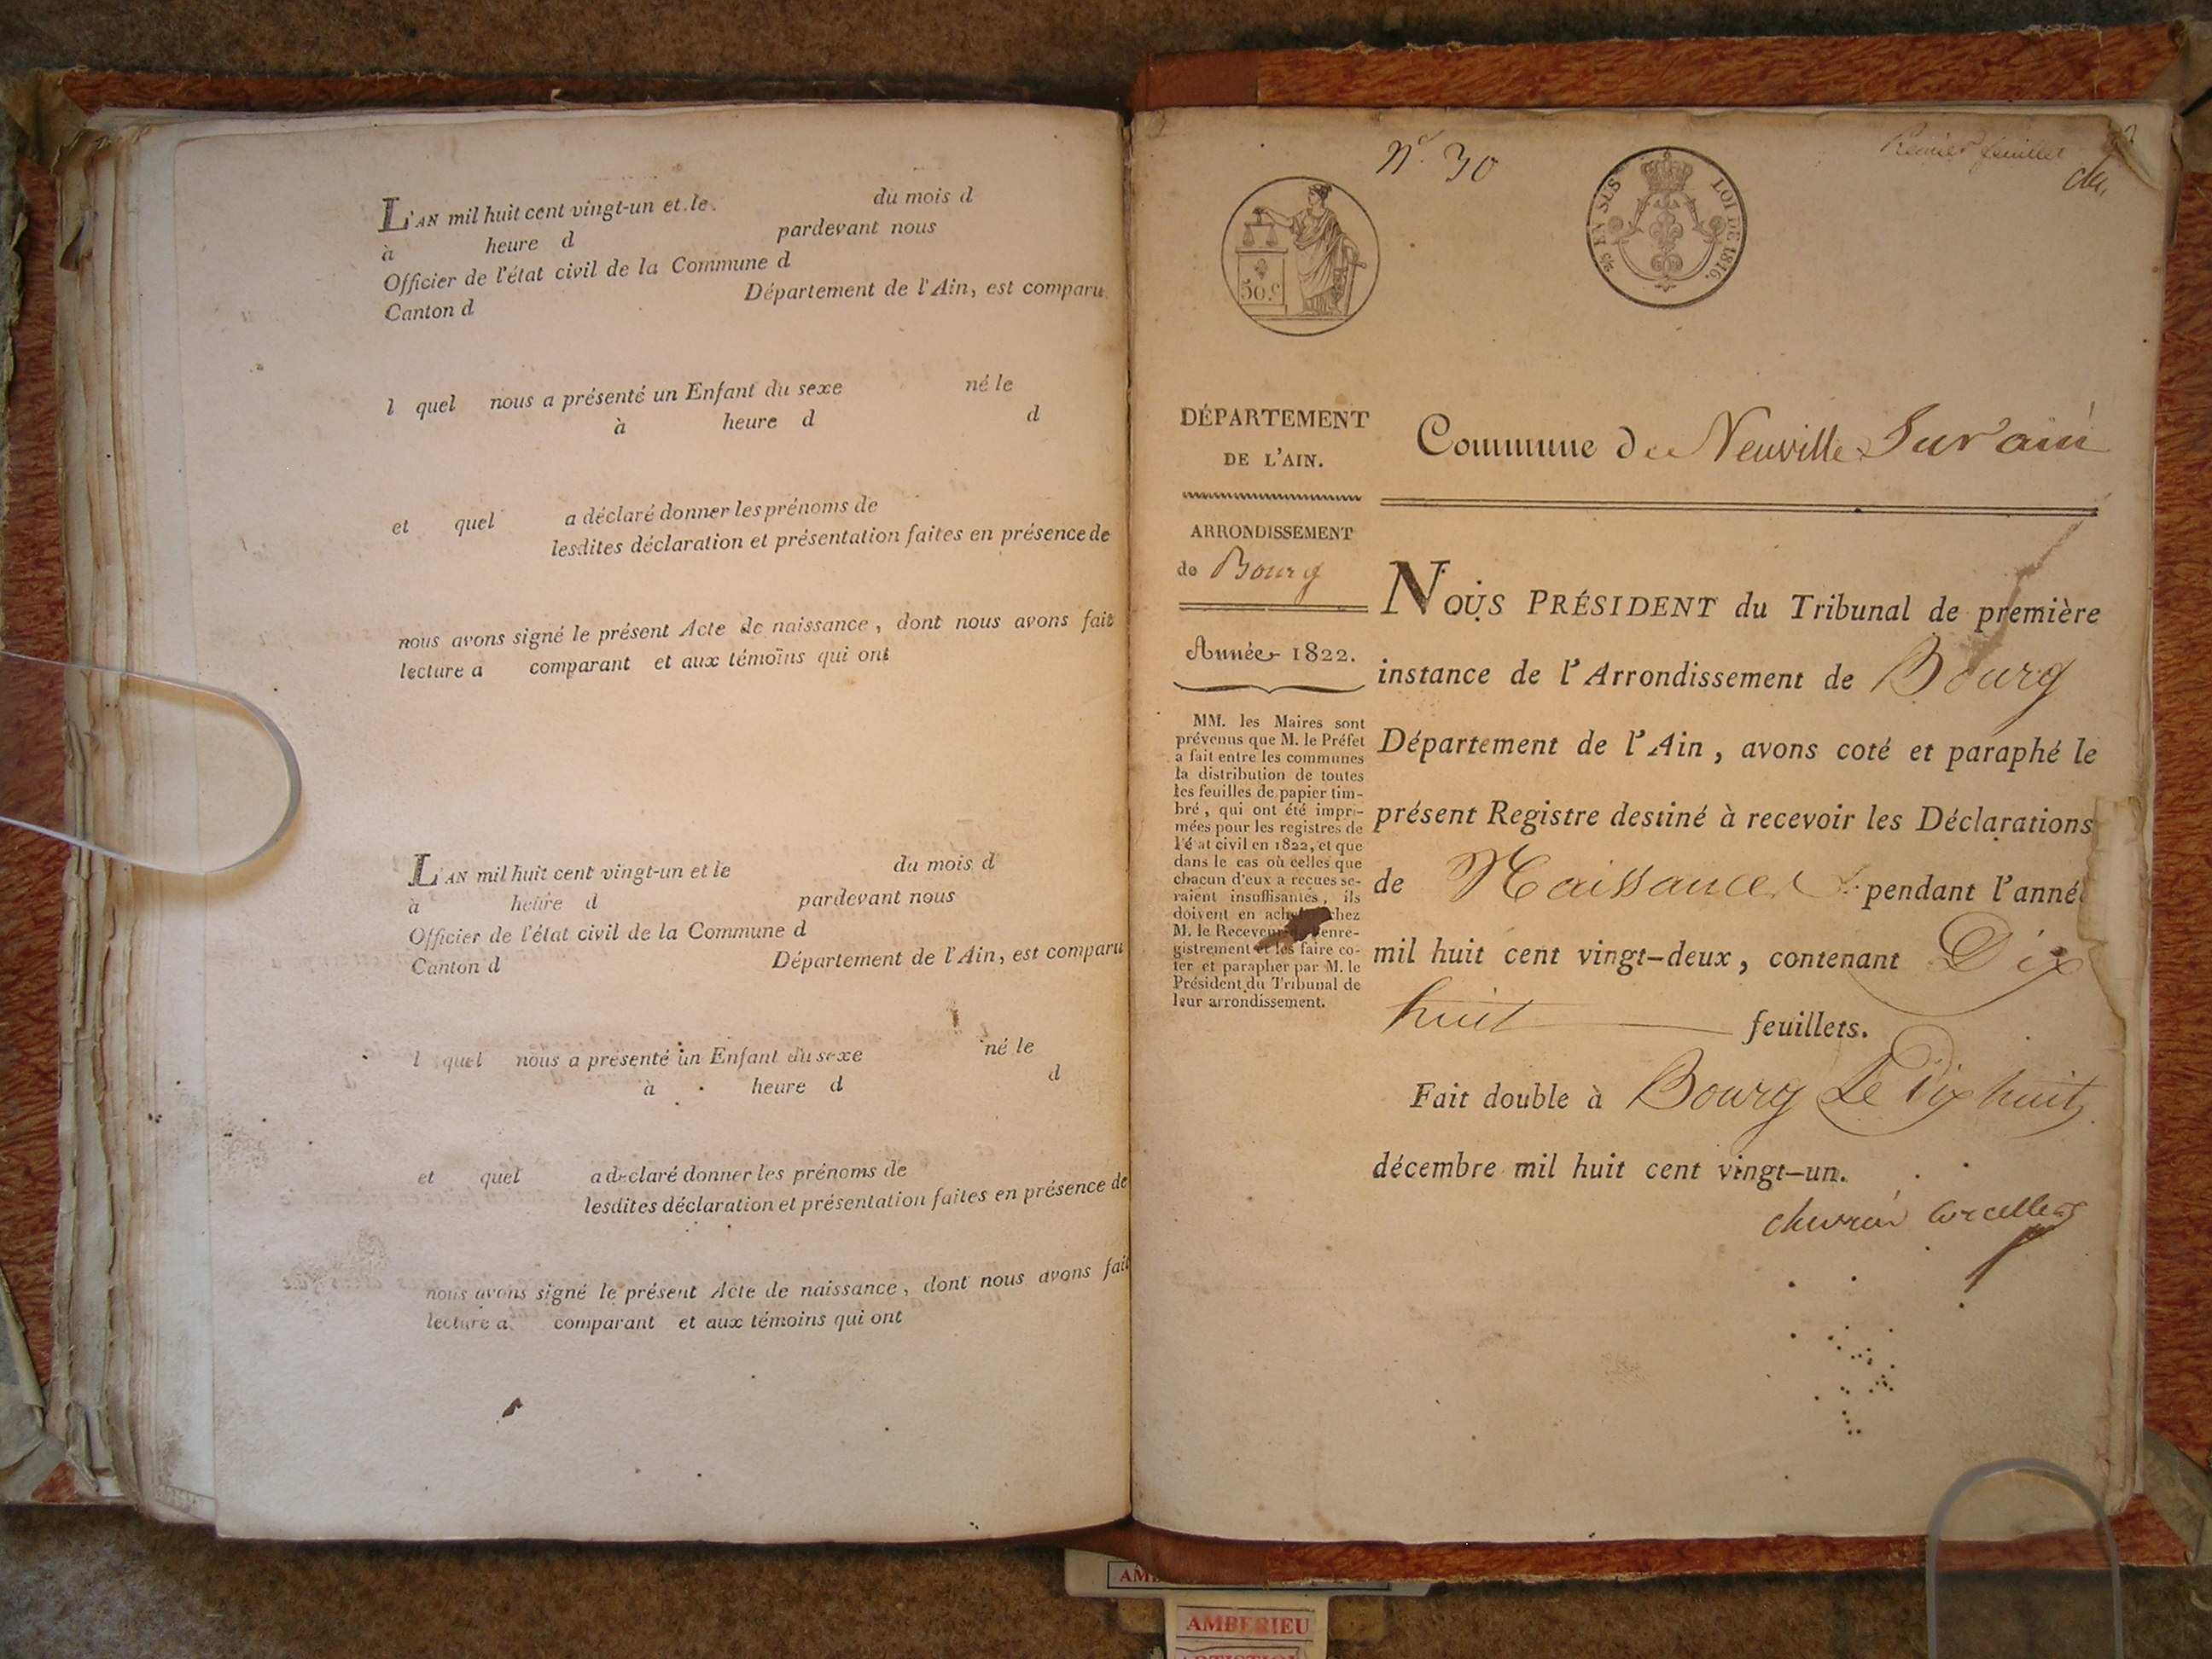 L'AN mil huit cent vingt-un et le du mois d
à heure d pardevant nous
Officier de l'état civil de la Commune d
Canton d Département de l'Ain, est comparu
l quel nous a présenté un Enfant du sexe né le
à heure d d
et quel a déclaré donner les prénoms de
lesdites déclaration et présentation faites en présence de
nous avons signé le présent Acte de naissance, dont nous avons fait
lecture a comparant et aux témoins qui ont
L'AN mil huit cent vingt-un et le du mois d
à heure d pardevant nous
Officier de l'état civil de la Commune d
Canton d Département de l'Ain, est comparu
l quel nous a présenté un Enfant du sexe né le
à heure d d
et quel a déclaré donner les prénoms de
lesdites déclaration et présentation faites en présence de
nous avons signé le présent Acte de naissance, dont nous avons fait
lecture a comparant et aux témoins qui ont
N.º 30
Premier feuillet
50 c
EN SUS LOI DE 1816.
DÉPARTEMENT
DE L'AIN.
ARRONDISSEMENT
de Bourg
Année 1822.
MM. les Maires sont
prévenus que M. le Préfet
a fait entre les communes
la distribution de toutes
les feuilles de papier tim-
bré, qui ont été impri-
mées pour les registres de
l'é at civil en 1822, et que
dans le cas où celles que
chacun d'eux a reçues se-
raient insuffisantes, ils
doivent en ach chez
M. le Receveur enre-
gistrement et les faire co-
ter et parapher par M. le
Président du Tribunal de
leur arrondissement.
Commune de Neuville Sur ain
NOUS PRÉSIDENT du Tribunal de première
instance de l'Arrondissement de Bourg
Département de l'Ain, avons coté et paraphé le
présent Registre destiné à recevoir les Déclarations
de Naissances pendant l'anné
mil huit cent vingt-deux, contenant Dix
huit feuillets.
Fait double à Bourg Le Dix huit
décembre mil huit cent vingt-un.
chevrier corcelles
AMBERIEU